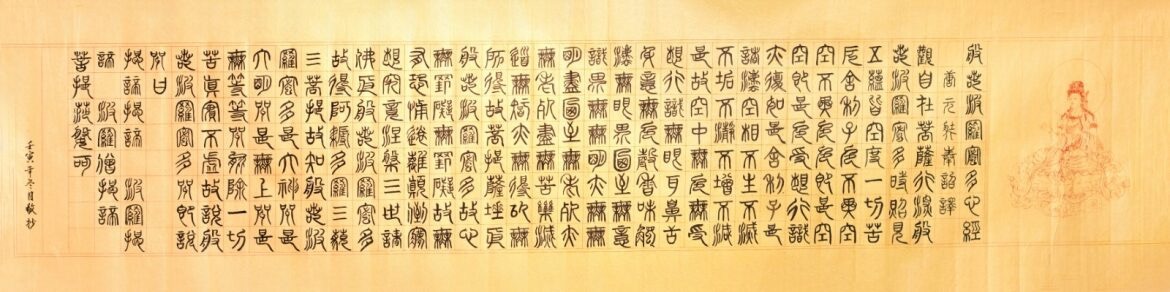 般若波羅蜜多心經
唐元奘奉詔譯
觀自在菩薩行深般
若波羅蜜多時照見
五蘊皆空度一切苦
厄舍利子色不異空
空不異色色即是空
空即是色受想行識
亦復如是舍利子是
諸法空相不生不滅
不垢不淨不增不減
是故空中無色無受
想行識無眼耳鼻舌
身意無色聲香味觸
法無眼界乃至無意
識界無無明亦無無
明盡乃至無老死亦
無老死盡無苦集滅
道無智亦無得以無
所得故菩提薩埵依
般若波羅蜜多故心
無罣礙無罣礙故無
有恐怖遠離顛倒夢
想究竟涅槃三世諸
佛依般若波羅蜜多
故得阿耨多羅三藐
三菩提故知般若波
羅蜜多是大神咒是
大明咒是無上咒是
無等等咒能除一切
苦真實不虛故說般
若波羅蜜多咒即說
咒曰
揭諦揭諦 波羅揭
諦 波羅僧揭諦
菩提薩婆訶
壬寅年冬月敬抄